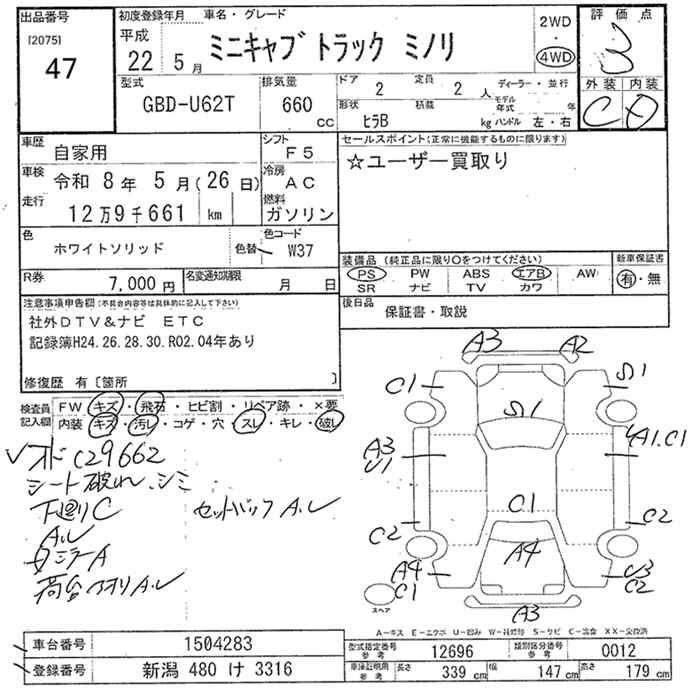 出品番号
[2075]
47
初度登録年月 車名・グレード
平成
22 5月 ミニキャブ トラック ミノリ
2WD
4WD
評価点
3
外装 内装
C D
型式
GBD-U62T
排気量
660 cc
ドア 2
定員 2 人
ディーラー・並行
モデル年式 年
形状 ヒラB
積載 kg
ハンドル 左・右
車歴
自家用
シフト
F5
車検 令和 8年 5月(26日)
冷房
AC
走行
12万9千661 km
燃料
ガソリン
色
ホワイトソリッド
色替
色コード
W37
セールスポイント(正常に機能するものに限ります)
☆ユーザー買取り
装備品(純正品に限り○をつけてください)
PS PW ABS エアB AW
SR ナビ TV カワ
新車保証書
有・無
R券 7,000円
名変通知期限 月 日
後日品
保証書・取説
注意事項申告欄(不具合内容等は具体的に記入して下さい)
社外DTV&ナビ ETC
記録簿H24.26.28.30.R02.04年あり
修復歴 有[箇所 ]
検査員記入欄
FW キズ・飛石・ヒビ割・リペア跡・×要
内装 キズ・汚レ・コゲ・穴・スレ・キレ・破レ
C29662
シート破れ、シミ
下廻りC セットバックA.U
A.U
ミラーA
荷台アオリA.U
A3 A2
C1 U1
U1
A3 U1
A1.C1
C1
C2 C2
A4
A4 C1
U3 C2
スペア
A3
A-キズ E-エクボ U-凹み W-補修跡 S-サビ C-腐食 XX-交換済
車台番号 1504283
登録番号 新潟 480 け 3316
型式指定番号 参考 12696
類別区分番号 参考 0012
車検証明用 参考 長さ 339 cm 幅 147 cm 高さ 179 cm